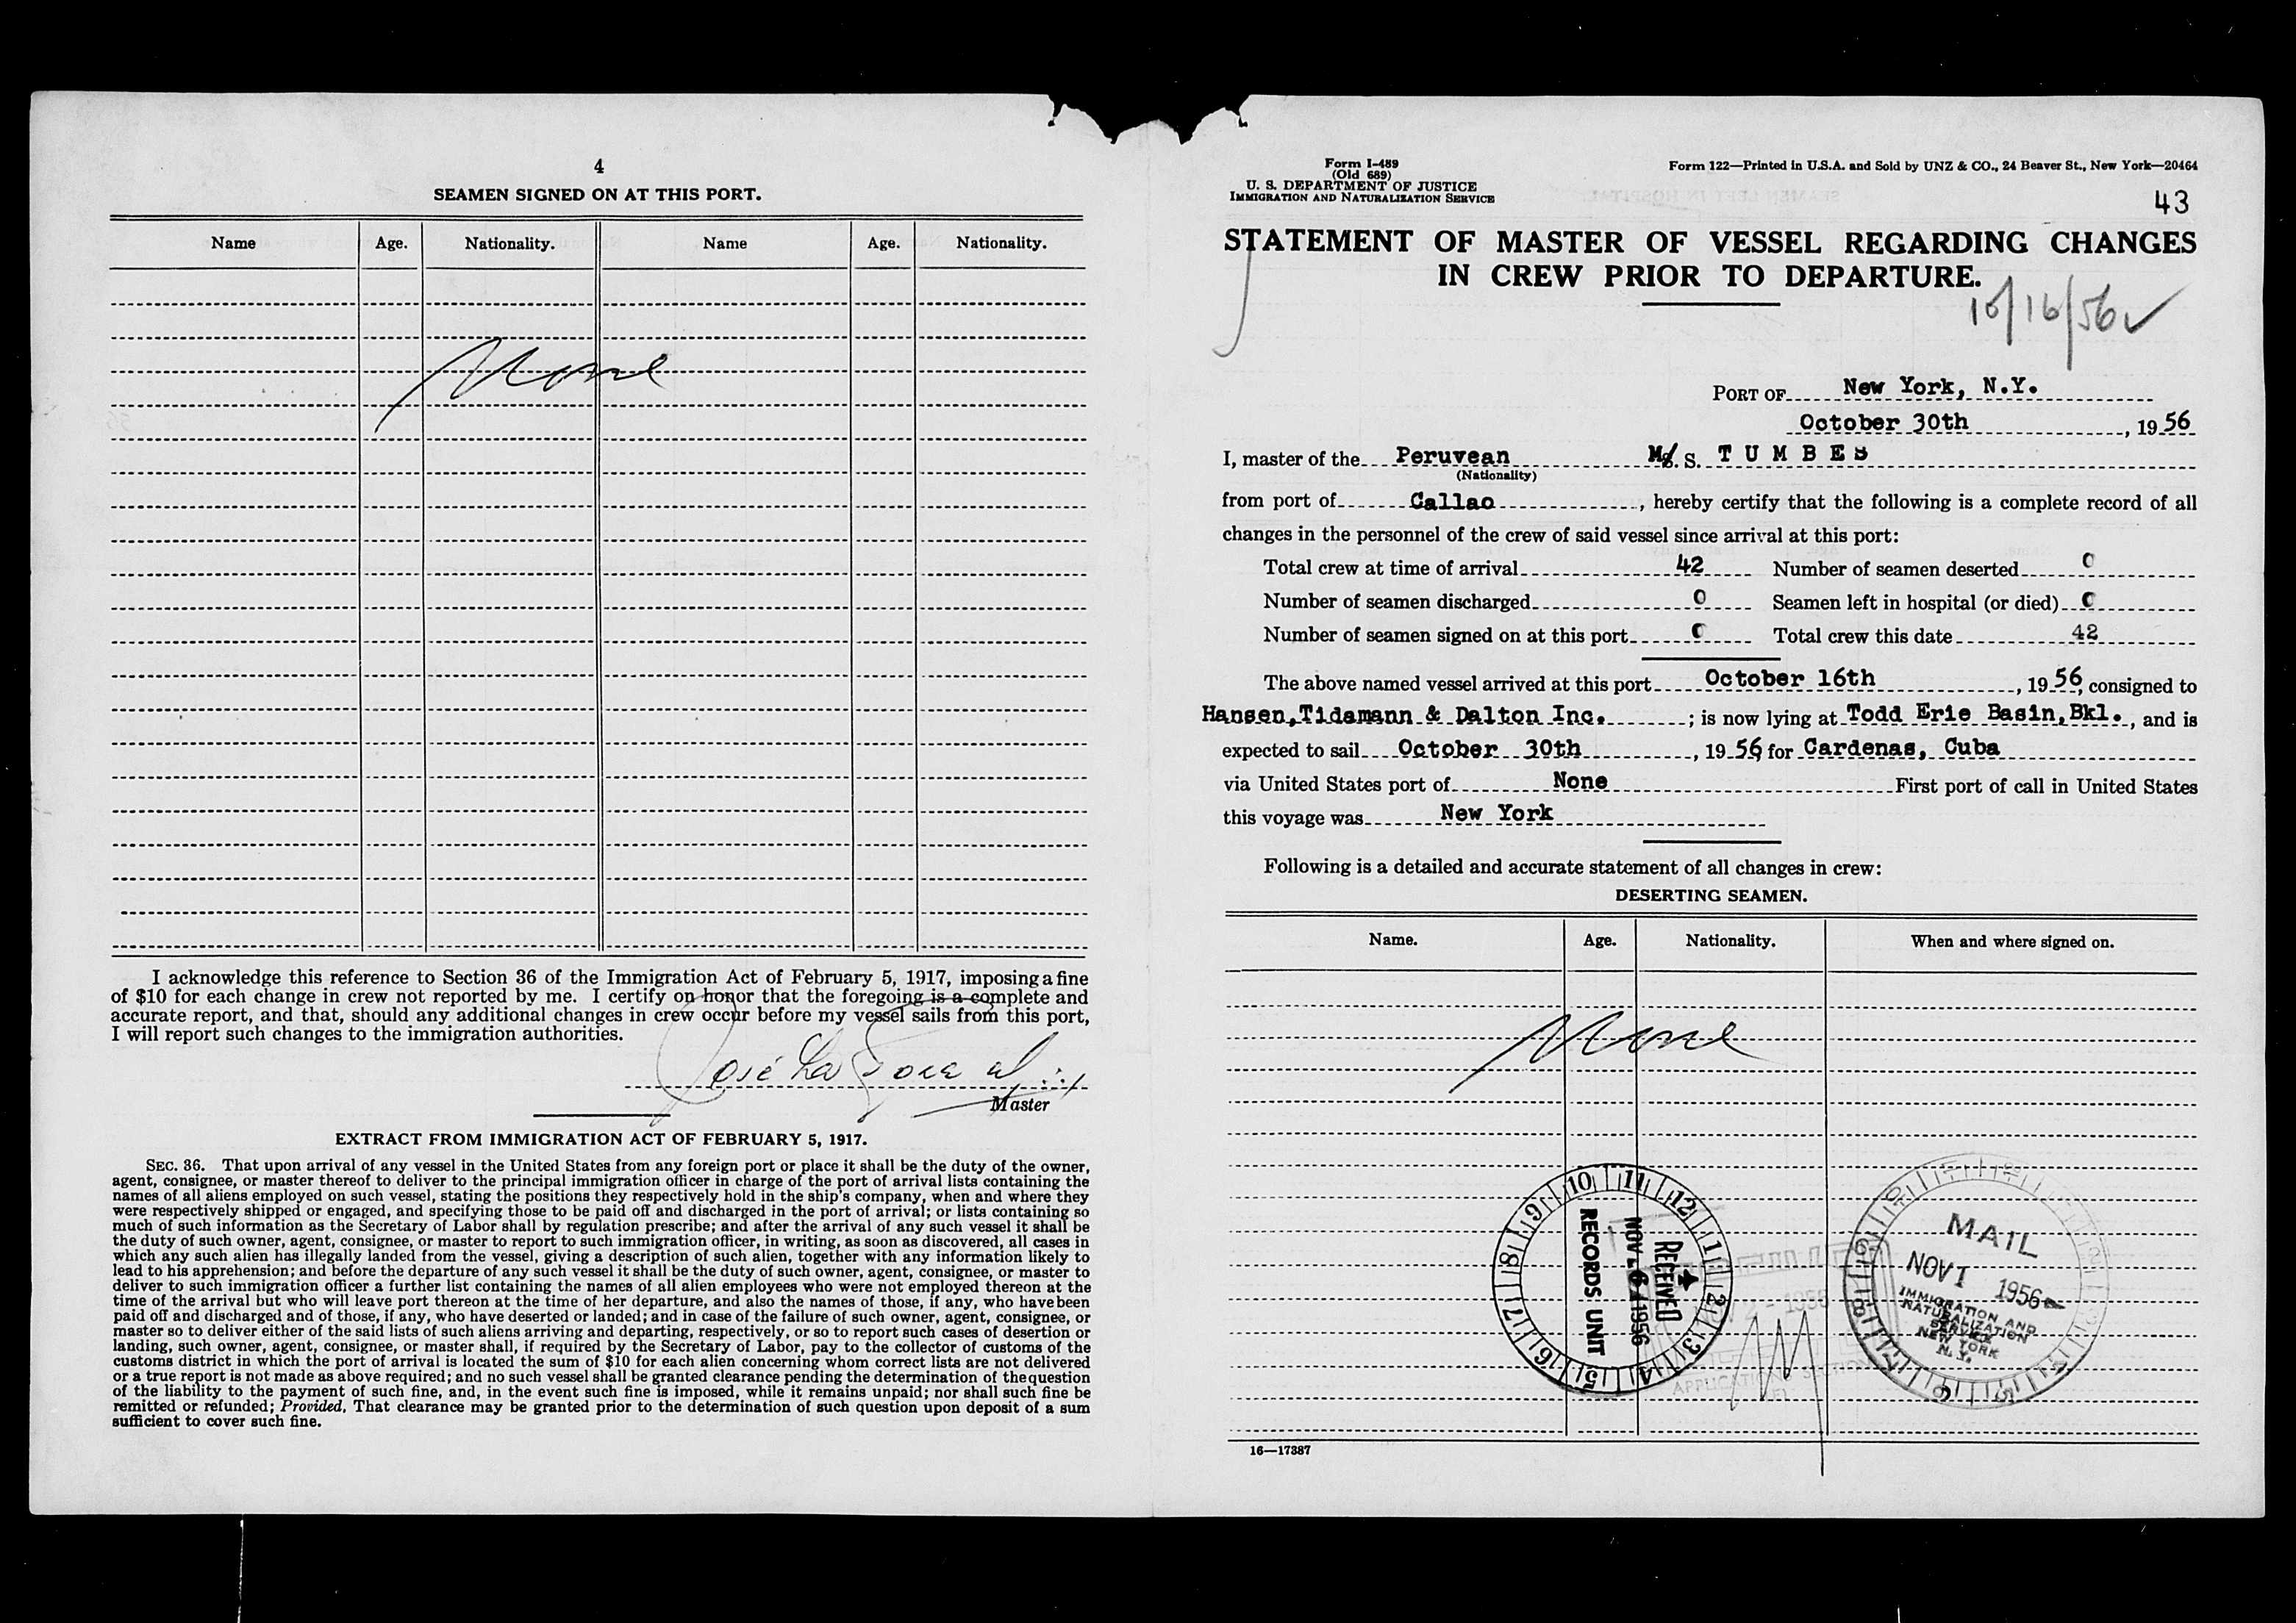 4
SEAMEN SIGNED ON AT THIS PORT.
Name Age. Nationality. Name Age. Nationality.
None
I acknowledge this reference to Section 36 of the Immigration Act of February 5, 1917, imposing a fine
of $10 for each change in crew not reported by me. I certify on honor that the foregoing is a complete and
accurate report, and that, should any additional changes in crew occur before my vessel sails from this port,
I will report such changes to the immigration authorities.
José La
Master
EXTRACT FROM IMMIGRATION ACT OF FEBRUARY 5, 1917.
SEC. 36. That upon arrival of any vessel in the United States from any foreign port or place it shall be the duty of the owner,
agent, consignee, or master thereof to deliver to the principal immigration officer in charge of the port of arrival lists containing the
names of all aliens employed on such vessel, stating the positions they respectively hold in the ship's company, when and where they
were respectively shipped or engaged, and specifying those to be paid off and discharged in the port of arrival; or lists containing so
much of such information as the Secretary of Labor shall by regulation prescribe; and after the arrival of any such vessel it shall be
the duty of such owner, agent, consignee, or master to report to such immigration officer, in writing, as soon as discovered, all cases in
which any such alien has illegally landed from the vessel, giving a description of such alien, together with any information likely to
lead to his apprehension; and before the departure of any such vessel it shall be the duty of such owner, agent, consignee, or master to
deliver to such immigration officer a further list containing the names of all alien employees who were not employed thereon at the
time of the arrival but who will leave port thereon at the time of her departure, and also the names of those, if any, who have been
paid off and discharged and of those, if any, who have deserted or landed; and in case of the failure of such owner, agent, consignee, or
master so to deliver either of the said lists of such aliens arriving and departing, respectively, or so to report such cases of desertion or
landing, such owner, agent, consignee, or master shall, if required by the Secretary of Labor, pay to the collector of customs of the
customs district in which the port of arrival is located the sum of $10 for each alien concerning whom correct lists are not delivered
or a true report is not made as above required; and no such vessel shall be granted clearance pending the determination of the question
of the liability to the payment of such fine, and, in the event such fine is imposed, while it remains unpaid; nor shall such fine be
remitted or refunded; Provided, That clearance may be granted prior to the determination of such question upon deposit of a sum
sufficient to cover such fine.
Form I-489
(Old 689)
U. S. DEPARTMENT OF JUSTICE
IMMIGRATION AND NATURALIZATION SERVICE
Form 122—Printed in U.S.A. and Sold by UNZ & CO., 24 Beaver St., New York—20464
43
STATEMENT OF MASTER OF VESSEL REGARDING CHANGES
IN CREW PRIOR TO DEPARTURE.
10/16/56
PORT OF New York, N.Y.
October 30th, 1956
I, master of the Peruvean M/S. S. TUMBES
(Nationality)
from port of Callao, hereby certify that the following is a complete record of all
changes in the personnel of the crew of said vessel since arrival at this port:
Total crew at time of arrival 42 Number of seamen deserted 0
Number of seamen discharged 0 Seamen left in hospital (or died) 0
Number of seamen signed on at this port 0 Total crew this date 42
The above named vessel arrived at this port October 16th, 1956, consigned to
Hansen,Tidamann & Dalton Inc.; is now lying at Todd Erie Basin,Bkl., and is
expected to sail October 30th, 1956 for Cardenas, Cuba
via United States port of None First port of call in United States
this voyage was New York
Following is a detailed and accurate statement of all changes in crew:
DESERTING SEAMEN.
Name. Age. Nationality. When and where signed on.
None
10 11 12 1 2 3 4 5 6 7 8 9
RECEIVED
NOV - 6 1956
RECORDS UNIT
MAIL
NOV 1 1956
IMMIGRATION AND
NATURALIZATION
SERVICE
NEW YORK
N.Y.
16—17387